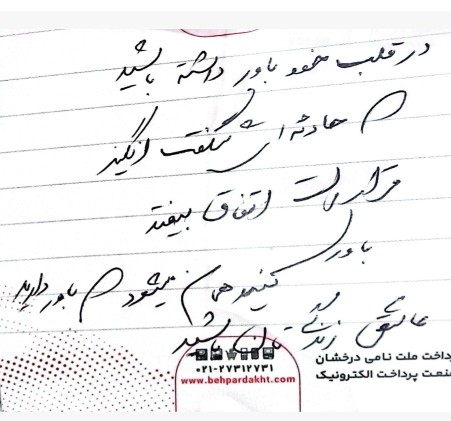 در قلب خود باور داشته باشید
که حادثه ای شگفت انگیز
قرار است اتفاق بیفتد
باور کنید همان میشود که باور دارید
عاشق زندگی تان باشید
داخت ملت نامی درخشان
صنعت پرداخت الکترونیک
۰۲۱-۲۷۳۱۲۷۳۱
www.behpardakht.com